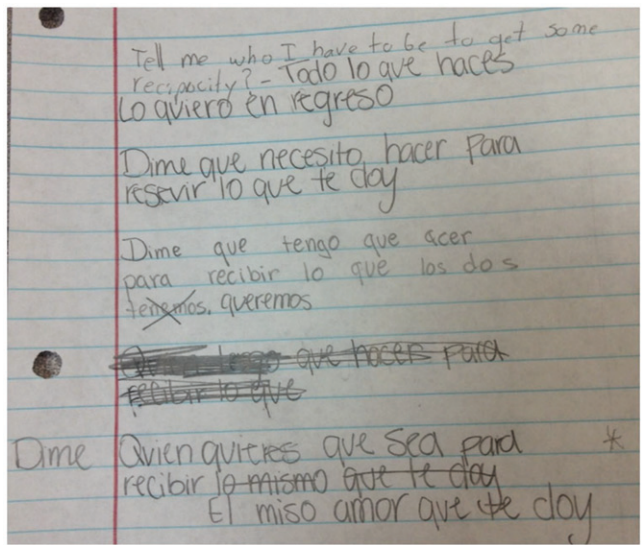 Tell me who I have to be to get some
recipocity? - Todo lo que haces
Lo quiero en regreso
Dime que necesito hacer para
resevir lo que te doy
Dime que tengo que acer
para recibir lo que los dos
tenemos. queremos
que hacer para
recibir lo que
Dime Quien quieres que sea para *
recibir lo mismo que te doy
El miso amor que te doy